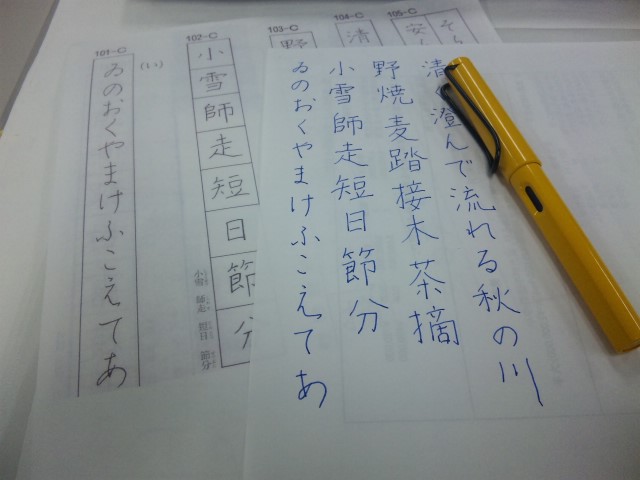 清 澄んで流れる秋の川
野焼麦踏接木茶摘
小雪師走短日節分
ゐのおくやまけふこえてあ
105-C
安
104-C
清
103-C
野
102-C
小雪師走短日節分
小雪 師走 短日 節分
101-C
(い)
ゐのおくやまけふこえてあ